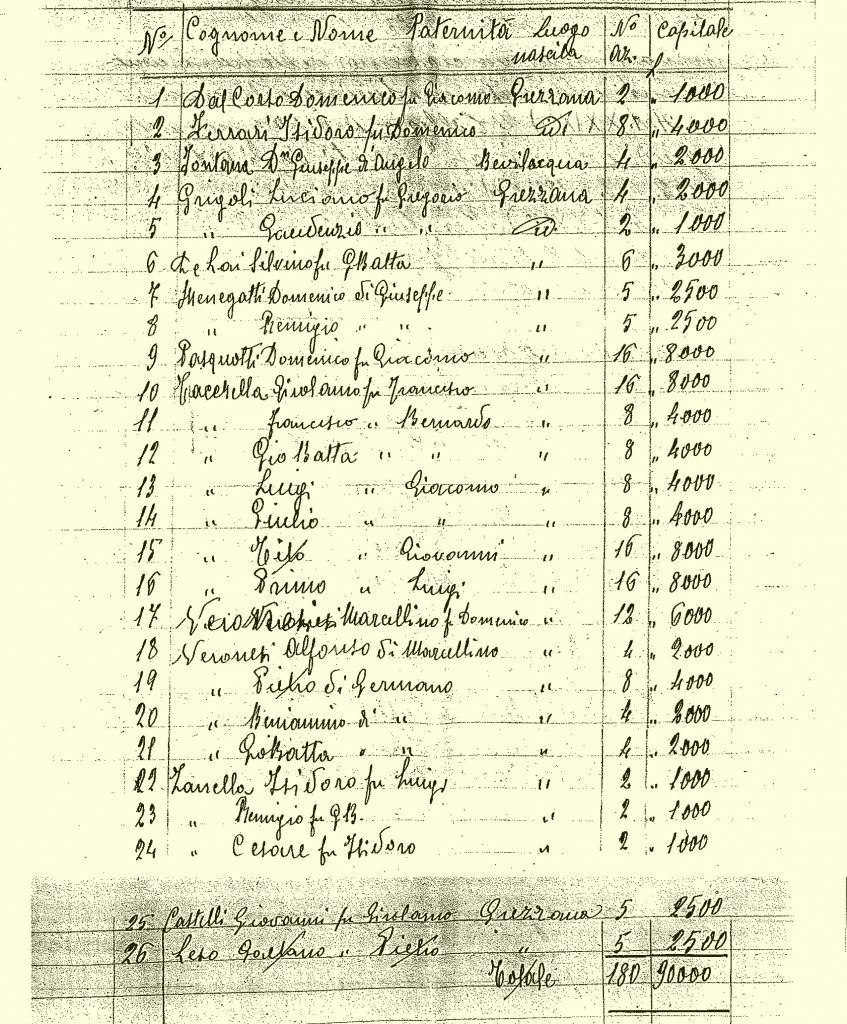 No Cognome e Nome Paternità Luogo nascita No az. Capitale £
1 Dal Corso Domenico fu Giacomo Grezzana 2 „ 1000
2 Ferrari Isidoro fu Domenico id 8 „ 4000
3 Fontana Dr Giuseppe di Angelo Bevilacqua 4 „ 2000
4 Grigoli Luciano fu Gregorio Grezzana 4 „ 2000
5 „ Gaudenzio „ „ id 2 „ 1000
6 Silvino fu GBatta „ 6 „ 3000
7 Menegatti Domenico di Giuseppe „ 5 „ 2500
8 „ Remigio „ „ „ 5 „ 2500
9 Pasquotti Domenico fu Giacomo „ 16 „ 8000
10 Girolamo fu Francesco „ 16 „ 8000
11 „ Francesco „ Bernardo „ 8 „ 4000
12 „ Gio Batta „ „ „ 8 „ 4000
13 „ Luigi „ Giacomo „ 8 „ 4000
14 „ Giulio „ „ „ 8 „ 4000
15 „ Tito „ Giovanni „ 16 „ 8000
16 „ Primo „ Luigi „ 16 „ 8000
17 Marcellino f Domenico „ 12 „ 6000
18 Veronesi Alfonso di Marcellino „ 4 „ 2000
19 „ Pietro di Germano „ 8 „ 4000
20 „ Beniamino di „ „ 4 „ 2000
21 „ GioBatta „ „ „ 4 „ 2000
22 Zanella Isidoro fu Luigi „ 2 „ 1000
23 „ Remigio fu G.B. „ 2 „ 1000
24 „ Cesare fu Isidoro „ 2 „ 1000
25 Castelli Giovanni fu Girolamo Grezzana 5 2500
26 Leso Gaetano „ Pietro „ 5 2500
Totale 180 90000